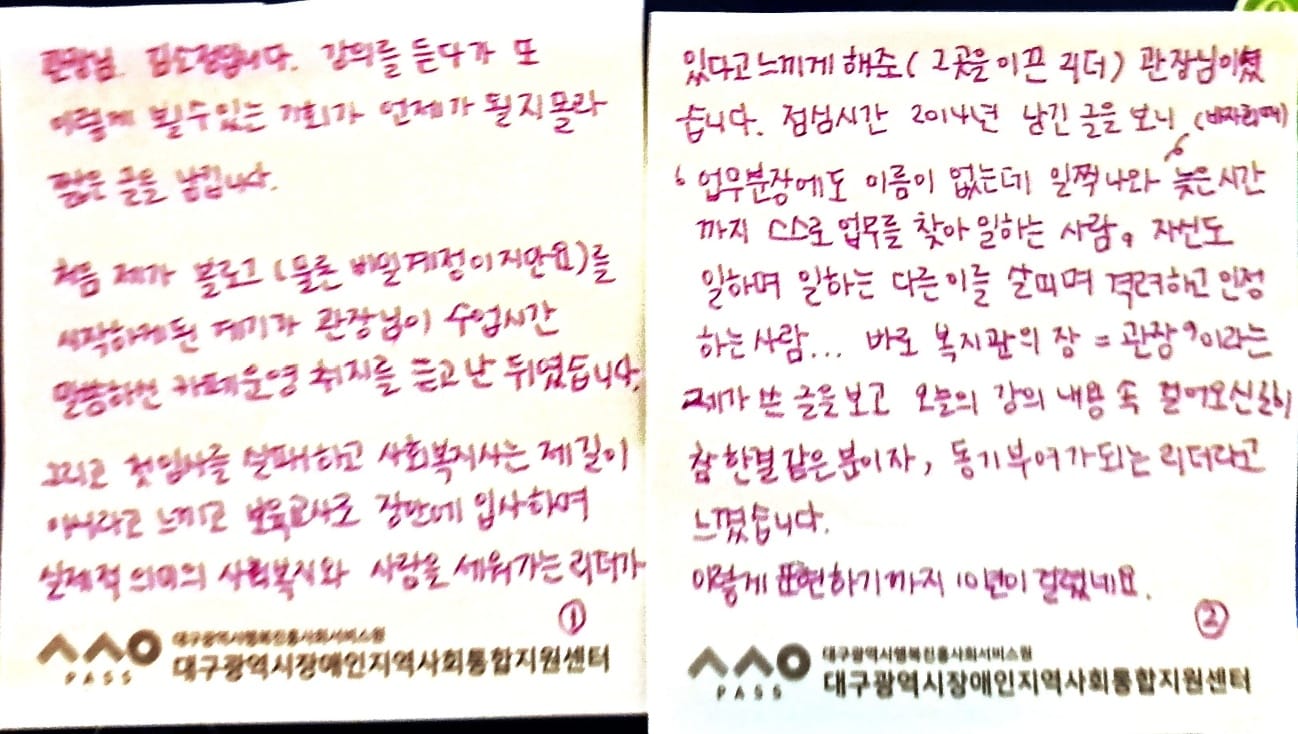 관장님. 김소정입니다. 강의를 듣다가 또
이렇게 뵐 수 있는 기회가 언제가 될지 몰라
짧은 글을 남깁니다.
처음 제가 블로그(물론 비밀계정이지만요)를
시작하게된 계기가 관장님이 수업시간
말씀하신 카페운영 취지를 듣고난 뒤였습니다.
그리고 첫입사를 실패하고 사회복지사는 제길이
아니라고 느끼고 보육교사로 장만에 입사하며
실제적 의미의 사회복지와 사람을 세워가는 리더가
①
대구광역시행복진흥사회서비스원
PASS 대구광역시장애인지역사회통합지원센터
있다고 느끼게 해준 (그곳을 이끈 리더) 관장님이셨
습니다. 점심시간 2014년 남긴 글을 보니 (바자회때)
"업무분장에도 이름이 없는데 일찍 나와 늦은시간
까지 스스로 업무를 찾아 일하는 사람, 자신도
일하며 일하는 다른 이를 살피며 격려하고 인정
하는 사람... 바로 복지관의 장 = 관장"이라는
제가 쓴 글을 보고 오늘의 강의 내용 속 걸어오신 길이
참 한결같은 분이자, 동기부여가 되는 리더라고
느꼈습니다.
이렇게 표현하기까지 10년이 걸렸네요.
②
대구광역시행복진흥사회서비스원
PASS 대구광역시장애인지역사회통합지원센터